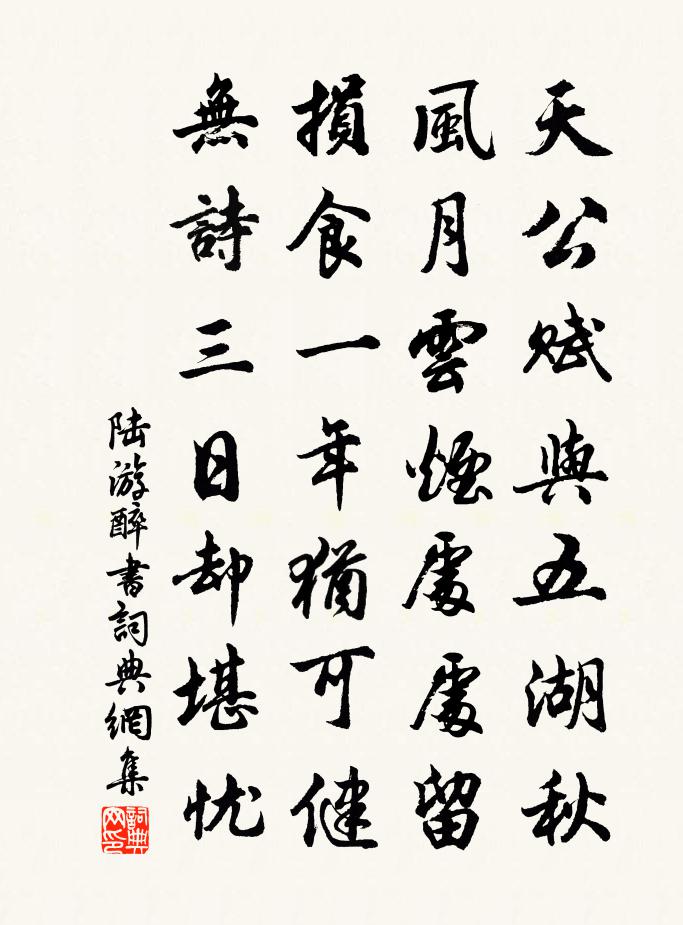 天公賦與五湖秋
風月雲煙處處留
損食一年猶可健
無詩三日却堪忧
陆游醉書詞典網集
詞典网印